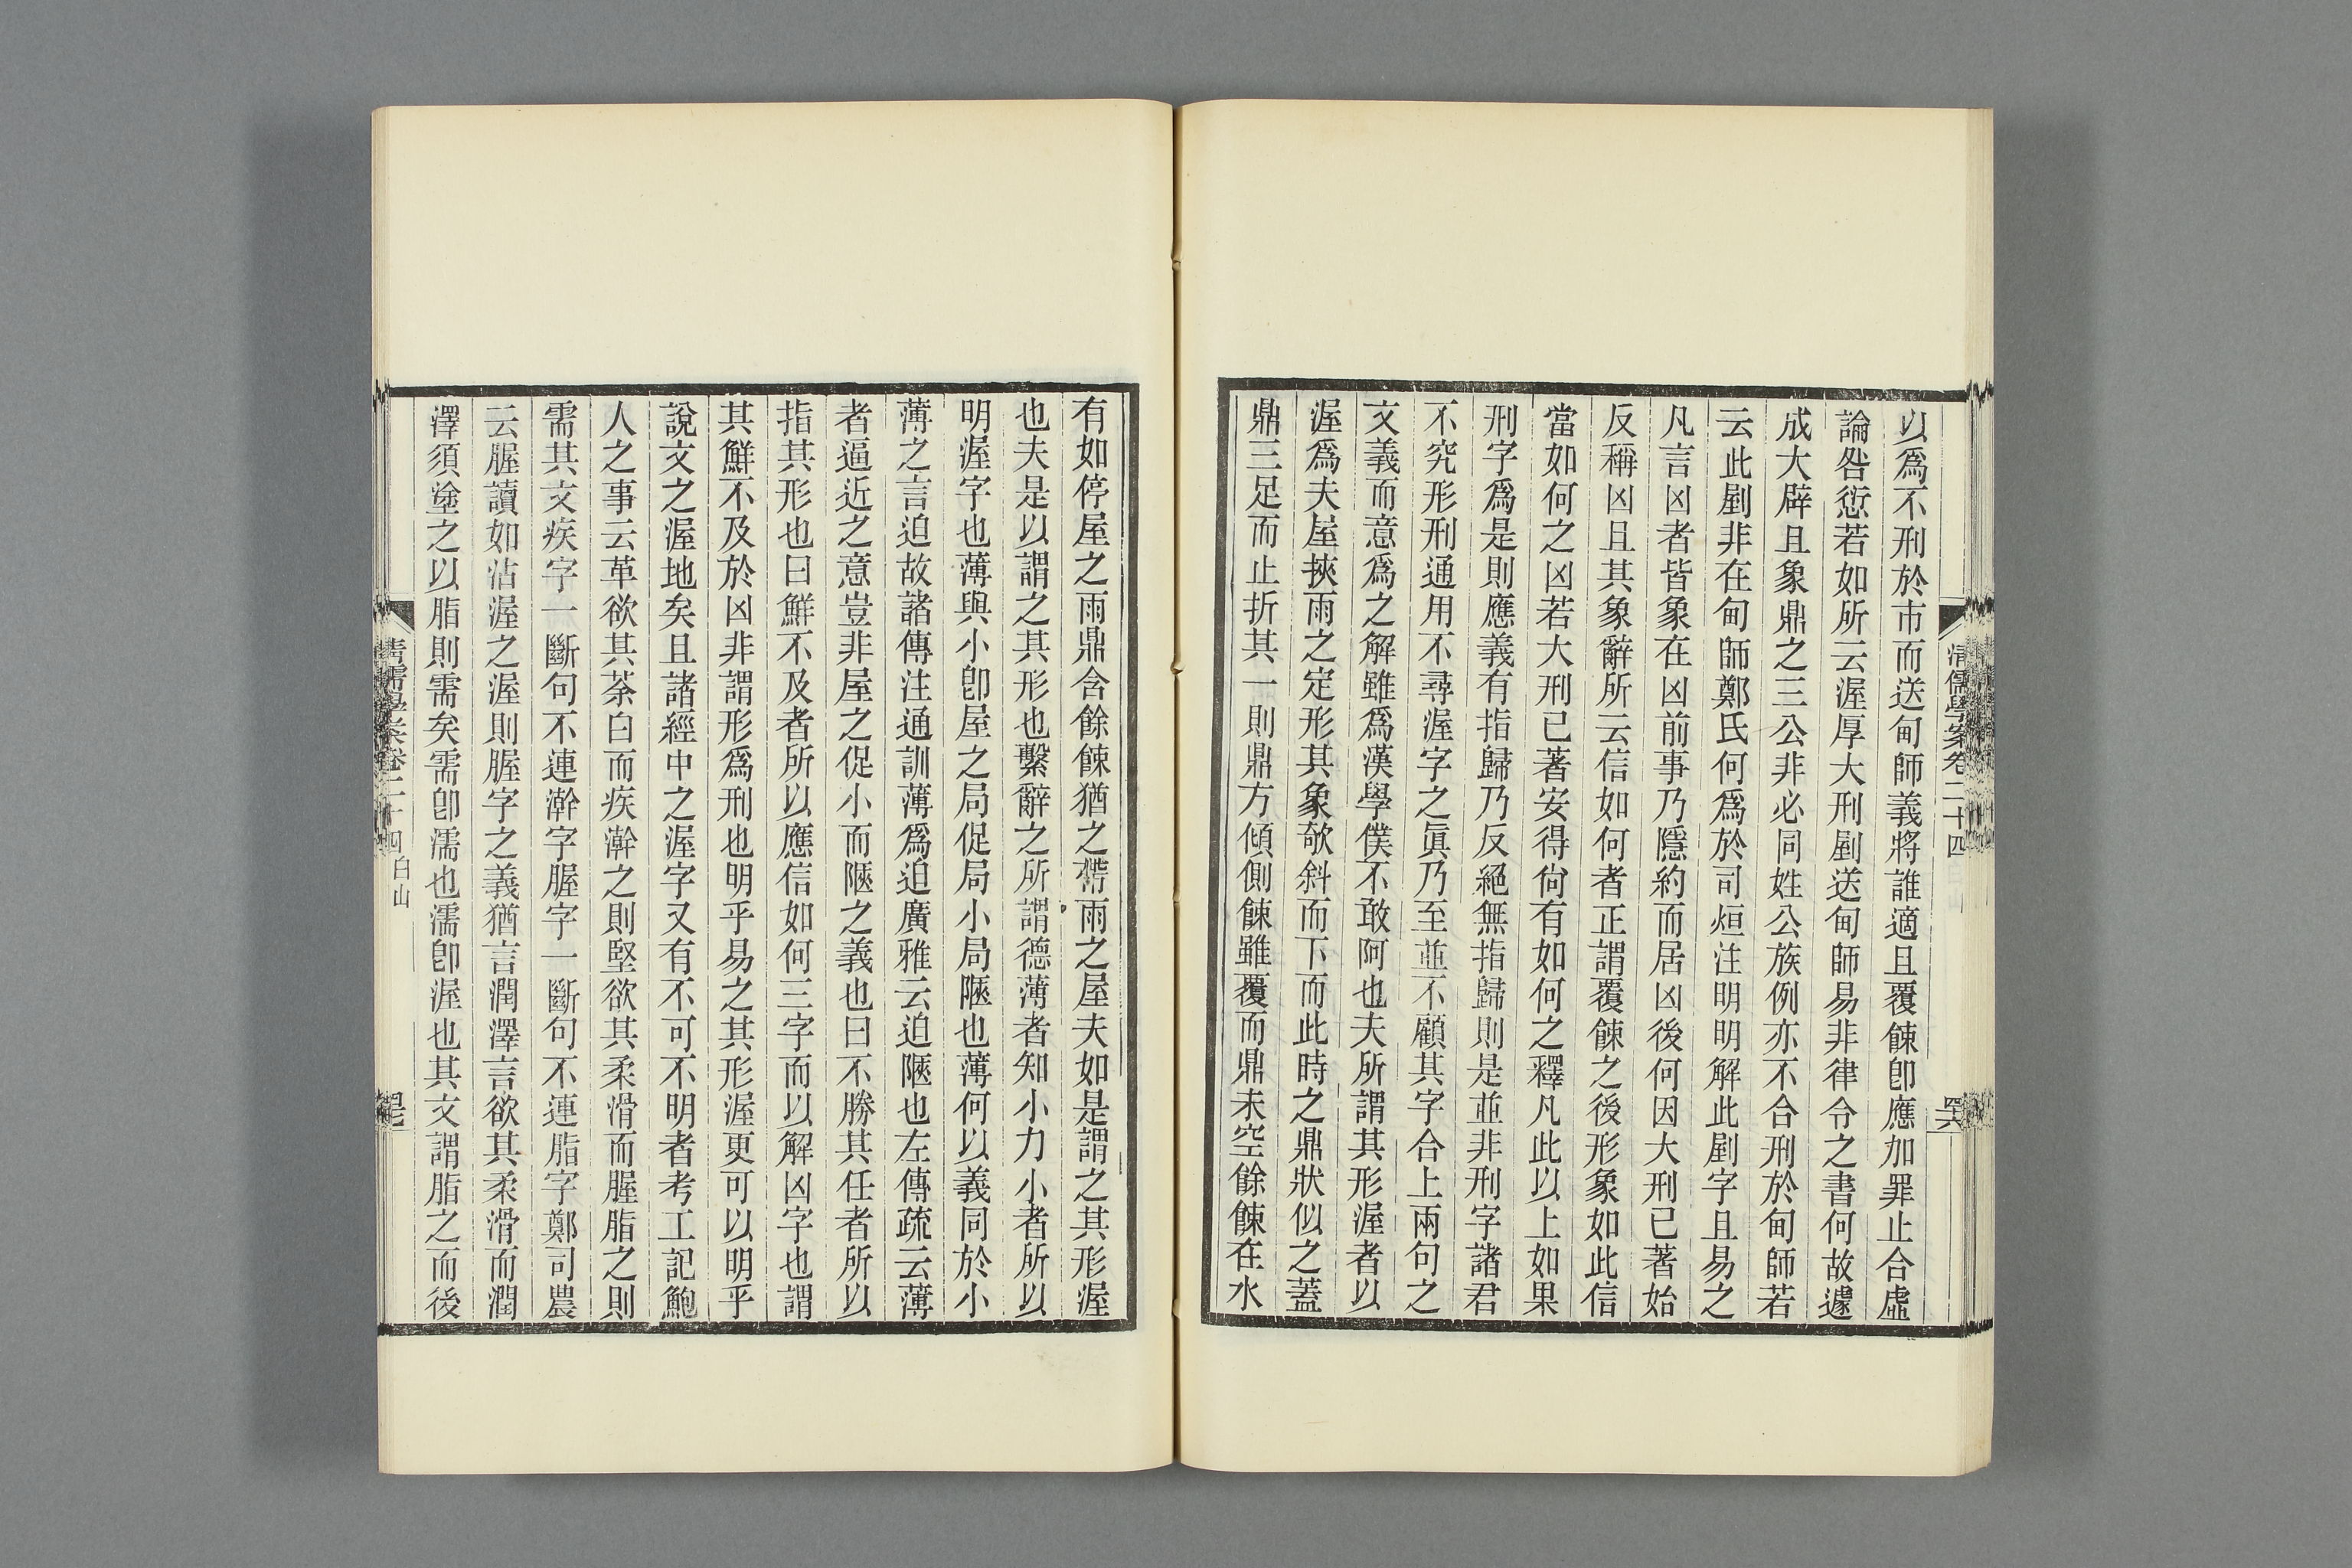 清儒學案卷二十四
罢
以爲不刑於市而送甸師義將誰適且覆餗卽應加罪止合虛
論咎愆若如所云渥厚大刑剭送甸師易非律令之書何故遽
成大辟且象鼎之三公非必同姓公族例亦不合刑於甸師若
云此剭非在甸師鄭氏何爲於司烜注明明解此剭字且易之
凡言凶者皆象在凶前事乃隱約而居凶後何因大刑已著始
反稱凶且其象辭所云信如何者正謂覆餗之後形象如此信
當如何之凶若大刑已著安得尙有如何之釋凡此以上如果
刑字爲是則應義有指歸乃反絕無指歸則是並非刑字諸君
不究形刑通用不尋渥字之眞乃至並不顧其字合上兩句之
文義而意爲之解雖爲漢學僕不敢阿也夫所謂其形渥者以
渥爲夫屋挾雨之定形其象欹斜而下而此時之鼎狀似之蓋
鼎三足而止折其一則鼎方傾側餗雖覆而鼎未空餘餗在水
有如停屋之雨鼎含餘餗猶之霶雨之屋夫如是謂之其形渥
也夫是以謂之其形也繫辭之所謂德薄者知小力小者所以
明渥字也薄與小卽屋之局促局小局陋也薄何以義同於小
薄之言迫故諸傳注通訓薄爲迫廣雅云迫陋也左傳疏云薄
者逼近之意豈非屋之促小而陋之義也曰不勝其任者所以
指其形也曰鮮不及者所以應信如何三字而以解凶字也謂
其鮮不及於凶非謂形爲刑也明乎易之其形渥更可以明乎
說文之渥地矣且諸經中之渥字又有不可不明者考工記鮑
人之事云革欲其荼白而疾澣之則堅欲其柔滑而腛脂之則
需其文疾字一斷句不連澣字腛字一斷句不連脂字鄭司農
云腛讀如沾渥之渥則腛字之義猶言潤澤言欲其柔滑而潤
澤須塗之以脂則需矣需卽濡也濡卽渥也其文謂脂之而後
清儒學案卷二十四 白山